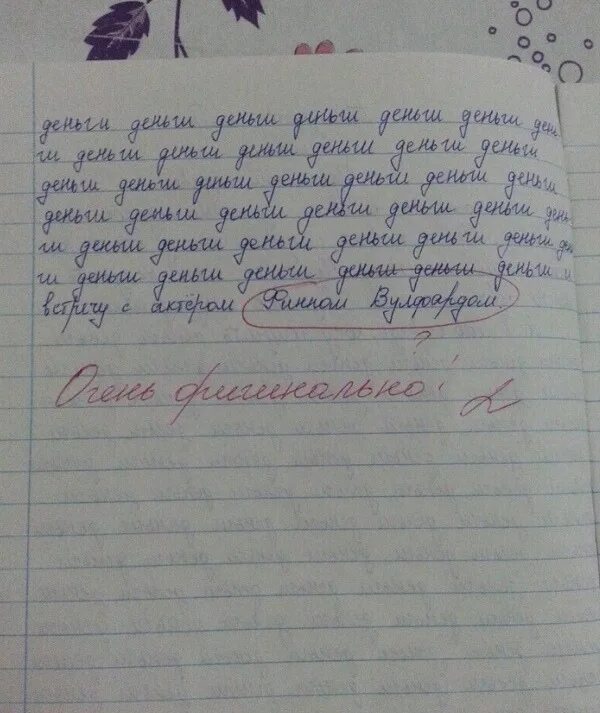 деньги деньги деньги деньги деньги деньги день
ги деньги деньги деньги деньги деньги деньги
деньги деньги деньги деньги деньги деньги деньги
деньги деньги деньги деньги деньги деньги день
ги деньги деньги деньги деньги деньги деньги день
ги деньги деньги деньги деньги деньги деньги и
встречу с актёром Финном Вулфардом.
?
Очень оригинально! 2